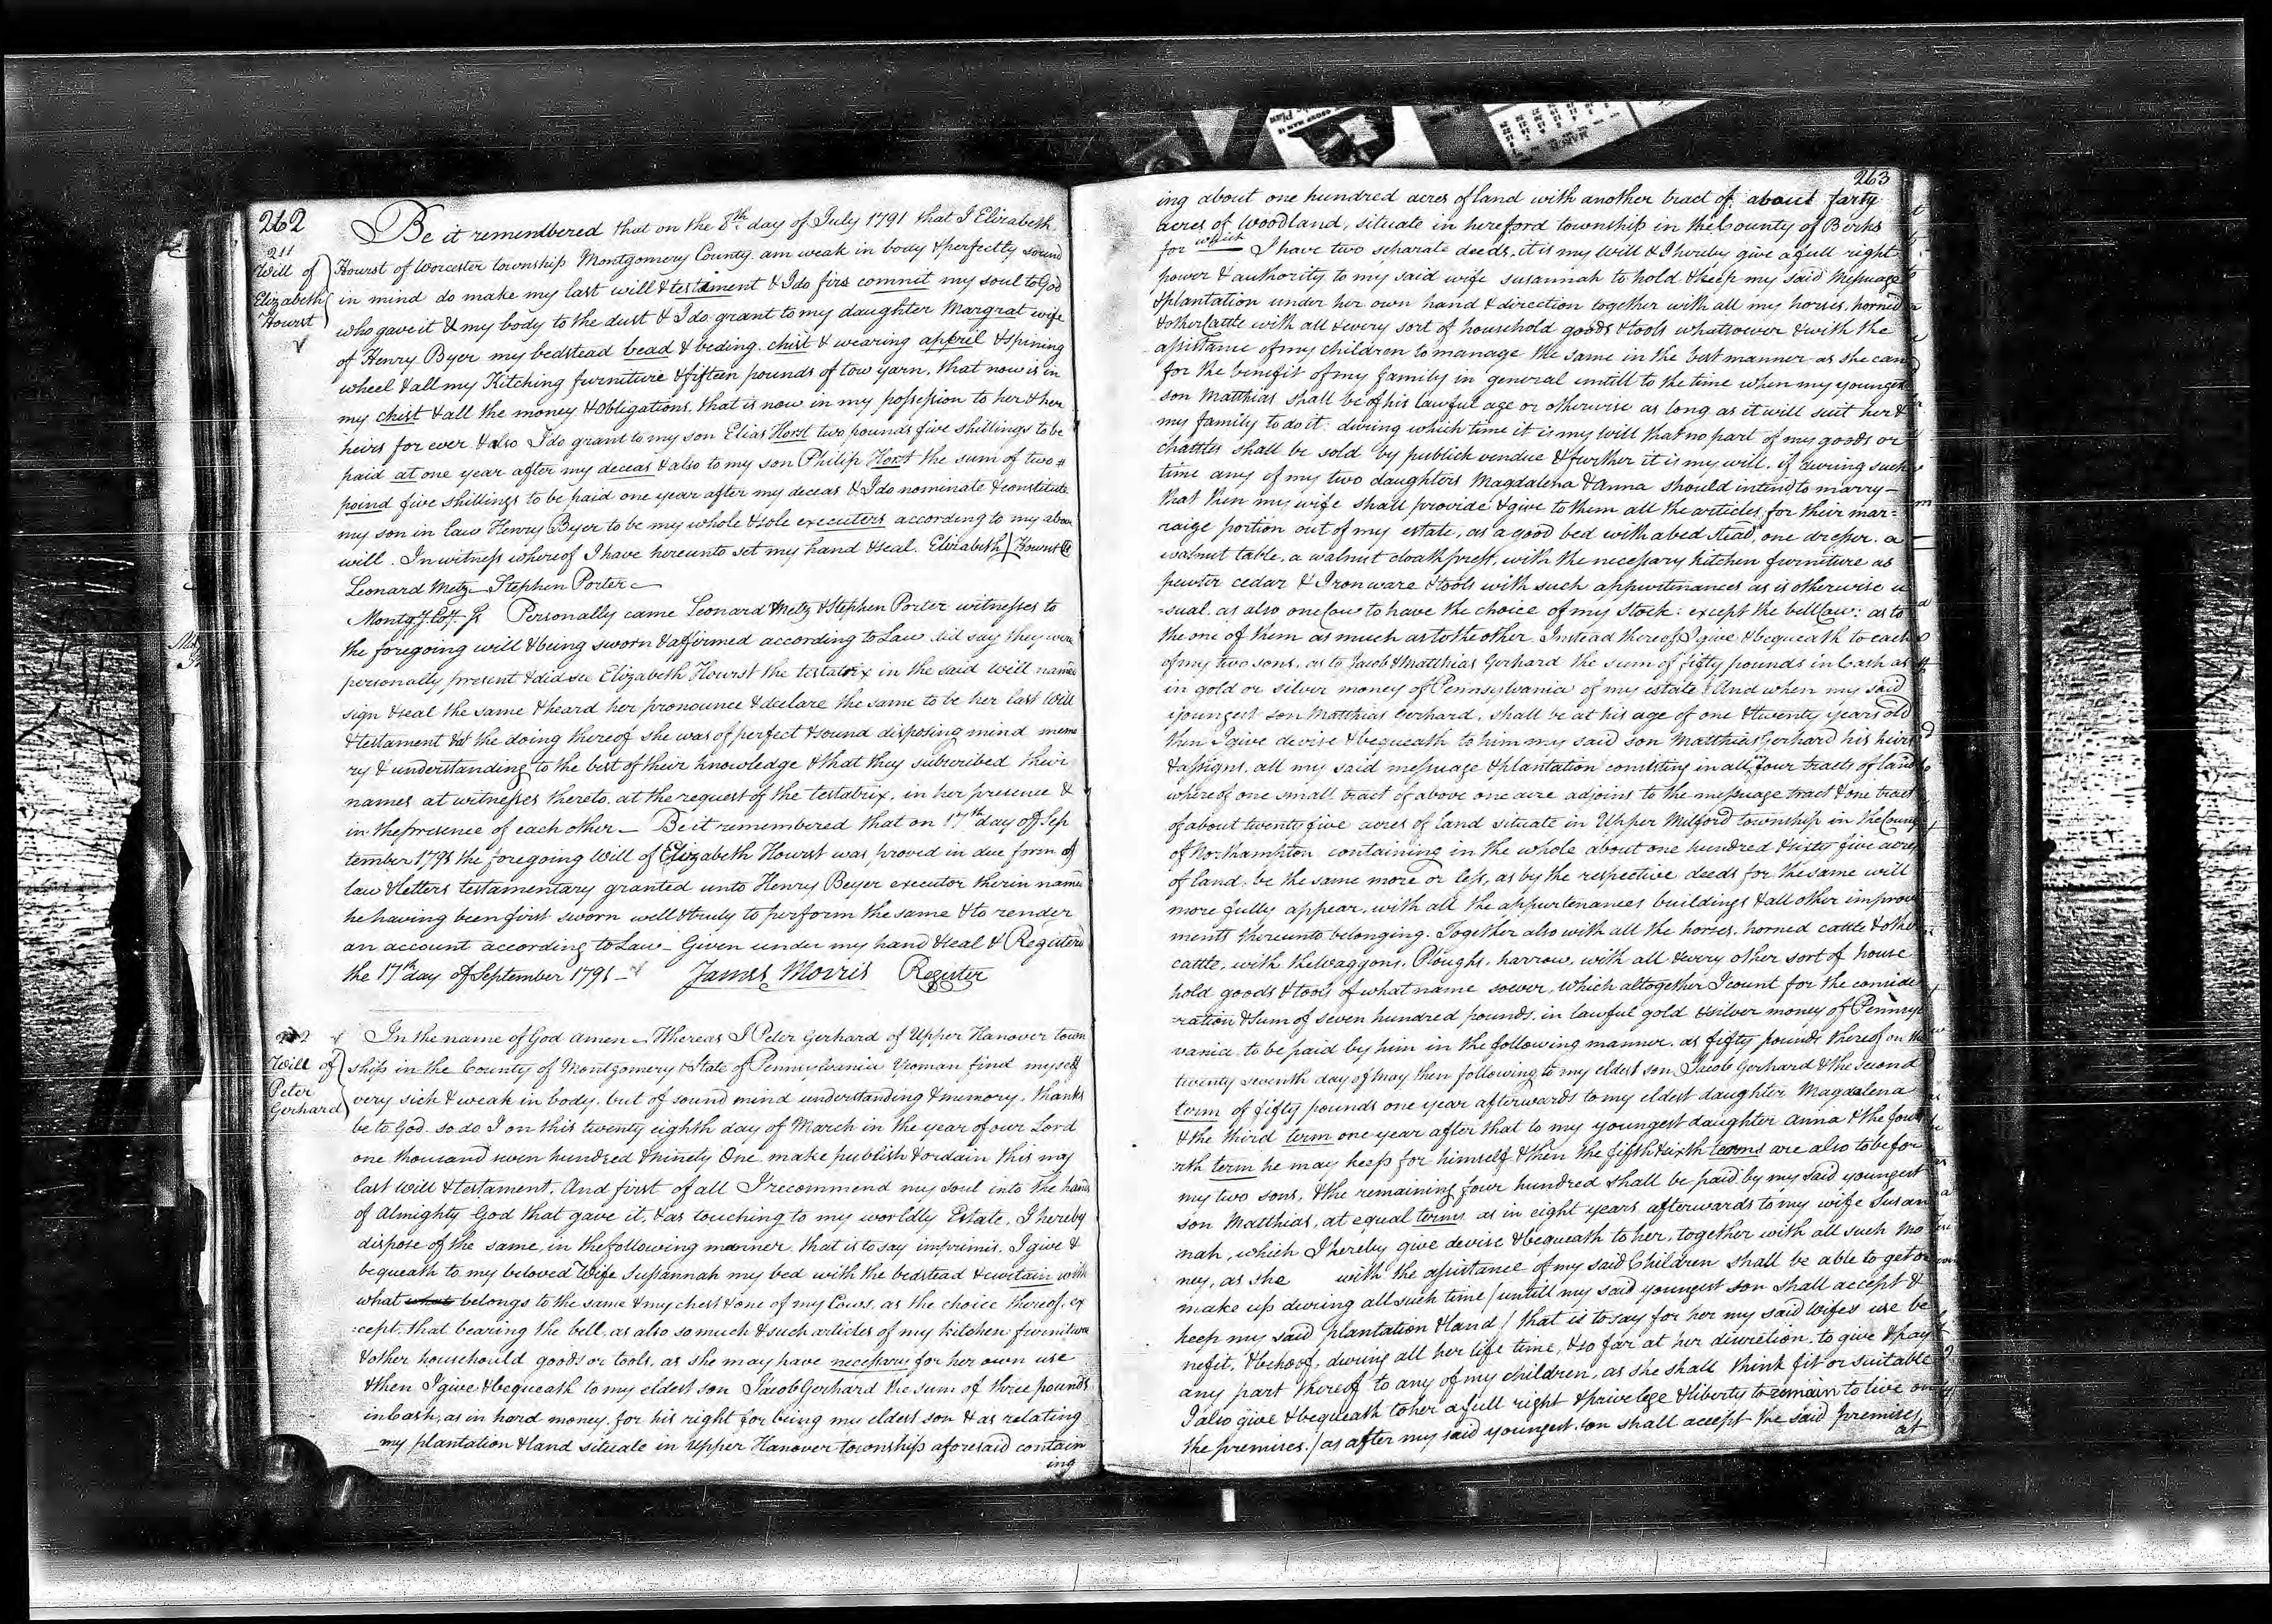 262
Be it remembered that on the 8th day of July 1791 that I Elizabeth
211
Will of
Elizabeth
Hourst
Hourst of Worcester township Montgomery County. am weak in body & perfectly sound
in mind do make my last will & testament & I do firs commit my soul to God
who gave it & my body to the dust & I do grant to my daughter Margrat wife
of Henry Byer my bedstead bead & beding. chist & wearing appril & spining
wheel & all my Kitching furniture & fifteen pounds of tow yarn. that now is in
my chist & all the money & obligations. that is now in my possession to her & her
heirs for ever & also I do grant to my son Elias Horst two pounds five shillings to be
paid at one year after my deceas & also to my son Philip Horst the sum of two
poind five shillings to be paid one year after my deceas & I do nominate & constitute
my son in law Henry Byer to be my whole & sole executers according to my above
will. In witness whereof I have hereunto set my hand & seal. Elizabeth Hourst
Leonard Metz Stephen Porter
Montgy Coy Ss Personally came Leonard Metz & Stephen Porter witnesses to
the foregoing will & being sworn & affirmed according to Law did say they were
personally present & did see Elizabeth Hourst the testatrix in the said will named
sign & seal the same & heard her pronounce & declare the same to be her last Will
& testament & at the doing thereof she was of perfect & sound disposing mind memo
ry & understanding to the best of their knowledge & that they subscribed their
names at witnesses thereto. at the request of the testatrix, in her presence &
in the presence of each other — Be it remembered that on 17th day of Sep
tember 1791 the foregoing Will of Elizabeth Hourst was proved in due form of
law & letters testamentary granted unto Henry Beyer executor therin named
he having been first sworn well & truly to perform the same & to render
an account according to Law — Given under my hand & seal & Registered
the 17th day of September 1791 — James Morris Register
212
Will of
Peter
Gerhard
In the name of God amen — Whereas I Peter Gerhard of Upper Hanover town
ship in the County of Montgomery & State of Pennsylvania Yeoman find myself
very sick & weak in body. but of sound mind understanding & memory. thanks
be to God. so do I on this twenty eighth day of March in the year of our Lord
one thousand seven hundred & ninety One make publish & ordain this my
last Will & testament. And first of all I recommend my soul into the hands
of Almighty God that gave it, & as touching to my worldly Estate, I hereby
dispose of the same, in the following manner. that is to say imprimis. I give &
bequeath to my beloved Wife Susannah my bed with the bedstead & curtain with
what what belongs to the same & my chest & one of my Cows, as the choice thereof. ex
=cept. that bearing the bell, as also so much & such articles of my kitchen furniture
& other househould goods or tools, as she may have necessary for her own use
& then I give & bequeath to my eldest son Jacob Gerhard the sum of three pounds
in Cash, as in hard money. for his right for being my eldest son & as relating
my plantation & land situate in Upper Hanover township aforesaid contain
ing
263
ing about one hundred acres of land with another tract of about forty
acres of woodland, situate in hereford township in the County of Berks
for which I have two separate deeds, it is my Will & I hereby give a full right
power & authority to my said wife susannah to hold & keep my said Messuage
& plantation under her own hand & direction together with all my horses, horned
& other Cattle with all & every sort of household goods & tools whatsower & with the
assistance of my children to manage the same in the best manner as she can
for the benifit of my family in general untill to the time when my youngest
son Matthias shall be of his lawful age or otherwise as long as it will suit her &
my family to do it. during which time it is my Will that no part of my goods or
chattles shall be sold by publick vendue & further it is my will. if during such
time any of my two daughters Magdalena & Anna should intend to marry —
that then my wife shall provide & give to them all the articles for their mar=
raige portion out of my estate, as a good bed with a bed stead, one dresser. a
walnut table, a walnut cloath press, with the necessary kitchen furniture as
pewter cedar & Iron ware & tools with such appurtenances as is otherwise u
=sual. as also one Cow to have the choice of my Stock: except the bell Cow: as to
the one of them as much as to the other. Instead thereof I give & bequeath to each
of my two sons, as to Jacob & Matthias Gerhard the sum of fifty pounds in Cash as
in gold or silver money of Pennsylvania of my estate & And when my said
youngest son Matthias Gerhard, shall be at his age of one & twenty years old
then I give devise & bequeath to him my said son Matthias Gerhard his heirs
& assigns. all my said messuage & plantation consisting in all in four tracts of land
whereof one small tract of above one acre adjoins to the messuage tract & one tract
of about twenty five acres of land situate in Upper Milford township in the County
of Northampton containing in the whole about one hundred & sixty five acres
of land. be the same more or less, as by the respective deeds for the same will
more fully appear, with all the appurtenances buildings & all other improve
ments thereunto belonging. Together also with all the horses, horned cattle & other
cattle, with the waggons. Ploughs. harrow, with all & every other sort of house
hold goods & tools of what name sower, which altogether I count for the conside
=ration & sum of seven hundred pounds. in lawful gold & silver money of Pennsyl
vania to be paid by him in the following manner. as fifty pounds thereof on the
twenty seventh day of May then following to my eldest son Jacob Gerhard & the second
term of fifty pounds one year afterwards to my eldest daughter Magdalena
& the third term one year after that to my youngest daughter Anna & the fou
rth term he may keep for himself & then the fifth & sixth terms are also to be for
my two sons, & the remaining four hundred shall be paid by my said youngest
son Matthias, at equal terms as in eight years afterwards to my wife Susan
nah, which I hereby give devise & bequeath to her, together with all such mo
ney, as she with the assistance of my said Children shall be able to get or
make up during all such time / untill my said youngest son shall accept &
keep my said plantation & land / that is to say for her my said Wifes use be
nefit, & behoof, during all her life time, & so far at her discretion. to give & pay
any part thereof to any of my children, as she shall think fit or suitable
I also give & bequeath to her a full right & privelege & liberty to remain to live on
the premises. / as after my said youngest son shall accept the said premises
at